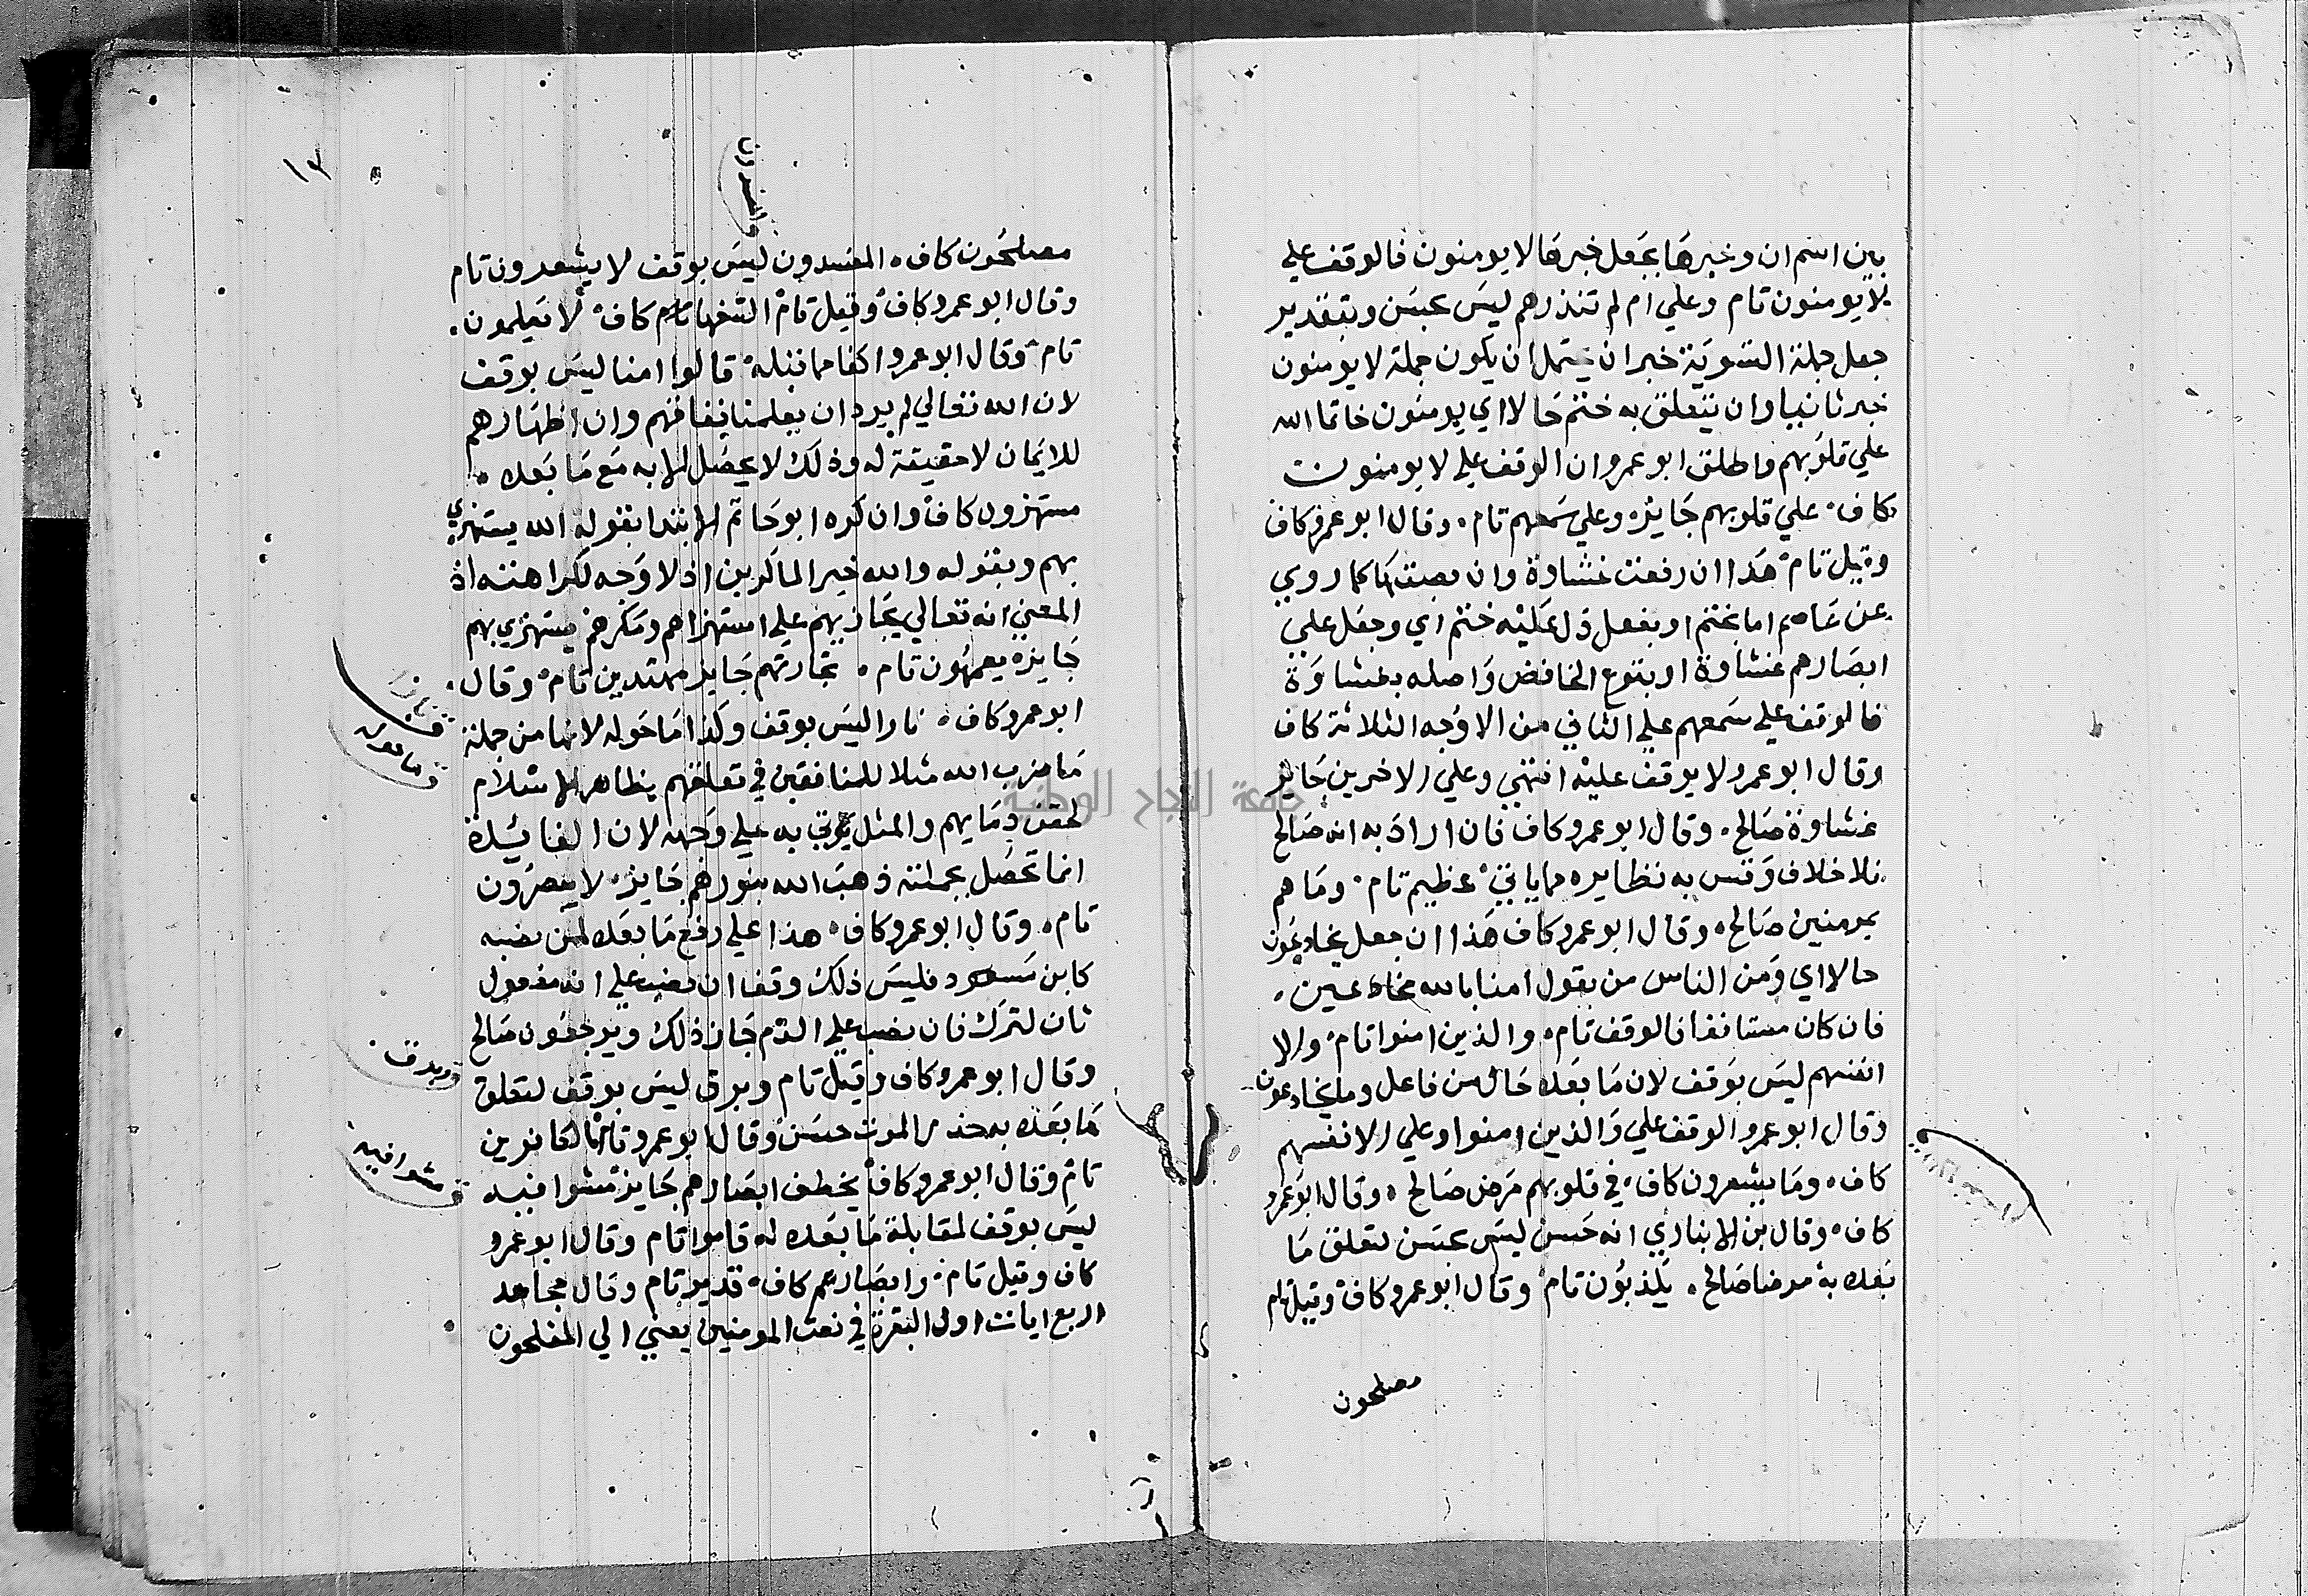 بين اسم ان وخبرها بجعل خبرها لا يومنون فالوقف علي
لا يومنون تام وعلي ام لم تنذرهم ليس بحسن وبتقدير
جعل جملة التسوية خبر ان يحتمل ان يكون جملة لا يومنون
خبر ثانيا وان يتعلق به ختم حالا اي يومنون خاتما الله
علي قلوبهم واطلق ابو عمرو ان الوقف علي لا يومنون
كاف، علي قلوبهم جايز، وعلي سمعهم تام، وقال ابو عمرو كاف
وقيل تام، هذا ان رفعت غشاوة وان نصبتها كما روي
عن عاصم اما بختم او بفعل دل عليه ختم اي وجعل علي
ابصارهم غشاوة او بنزع الخافض واصله بغشاوة
فالوقف علي سمعهم علي الثاني من الاوجه الثلاثة كاف
وقال ابو عمرو لا يوقف عليه انتهي وعلي الاخرين جايز
غشاوة صالح، وقال ابو عمرو كاف فان اراد به انه صالح
فلا خلاف وقس به نظايره مما ياتي، عظيم تام، وما هم
بمومنين صالح، وقال ابو عمرو كاف هذا ان جعل يخادعون
حالا اي ومن الناس من يقول امنا بالله مخادعين،
فان كان مستانفا فالوقف تام، والذين امنوا تام، والا
انفسهم ليس بوقف لان ما بعده حال من فاعل وما يخادعون
وقال ابو عمرو الوقف علي والذين امنوا وعلي الا انفسهم
كاف، وما يشعرون كاف، في قلوبهم مرض صالح، وقال ابو عمرو
كاف، وقال بن الانباري انه حسن ليس بحسن لتعلق ما
بعده به مرضا صالح، يكذبون تام، وقال ابو عمرو كاف وقيل تام
مصلحون
١٣
المفسدون
مصلحون كاف، المفسدون ليس بوقف لا يشعرون تام
وقال ابو عمرو كاف، وقيل تام، السفهاء كاف، لا يعلمون،
تام، وقال ابو عمرو اكفا مما قبله، قالوا امنا ليس بوقف
لان الله تعالي لم يرد ان يعلمنا نفاقهم وان اظهارهم
للايمان لا حقيقة له وذلك لا يحصل الا به مع ما بعده،
مستهزون كاف، وان كره ابو حاتم الابتدا بقوله الله يستهزي
بهم وبقوله والله خير الماكرين اذ لا وجه لكراهته اذ
المعني انه تعالي يجازيهم علي استهزاهم ومكرهم يستهزي بهم
جايز، يعمهون تام، تجارتهم جايز مهتدين تام، وقال،
ابو عمرو كاف، نارا ليس بوقف وكذا ما حوله لانها من جملة
ما ضرب الله مثلا للمنافقين في تعلقهم بظاهر الاسلام
لحقن دمايهم والمثل يوتي به علي وجهه لان الفايدة
انما تحصل بجملته ذهب الله بنورهم جايز، لا يبصرون
تام، وقال ابو عمرو كاف، هذا علي رفع ما بعده لمن نصبه
كابن مسعود فليس ذلك وقفا ان نصب علي انه مفعول
ثان لترك فان نصب علي الذم جاز ذلك ويرجعون صالح
وقال ابو عمرو كاف وقيل تام وبرق ليس بوقف لتعلق
ما بعده به حذر الموت حسن وقال ابو عمرو تام بالكافرين
تام، وقال ابو عمرو كاف، يخطف ابصارهم جايز، مشوا فيه
ليس بوقف لمقابلة ما بعده له قاموا تام وقال ابو عمرو
كاف وقيل تام، وابصارهم كاف، قدير تام وقال مجاهد
اربع ايات اول البقرة في نعت المومنين يعني الي المفلحون
ق نارا
ق ما حوله
ق وبرق
ق مشوا فيه
جامعة النجاح الوطنية